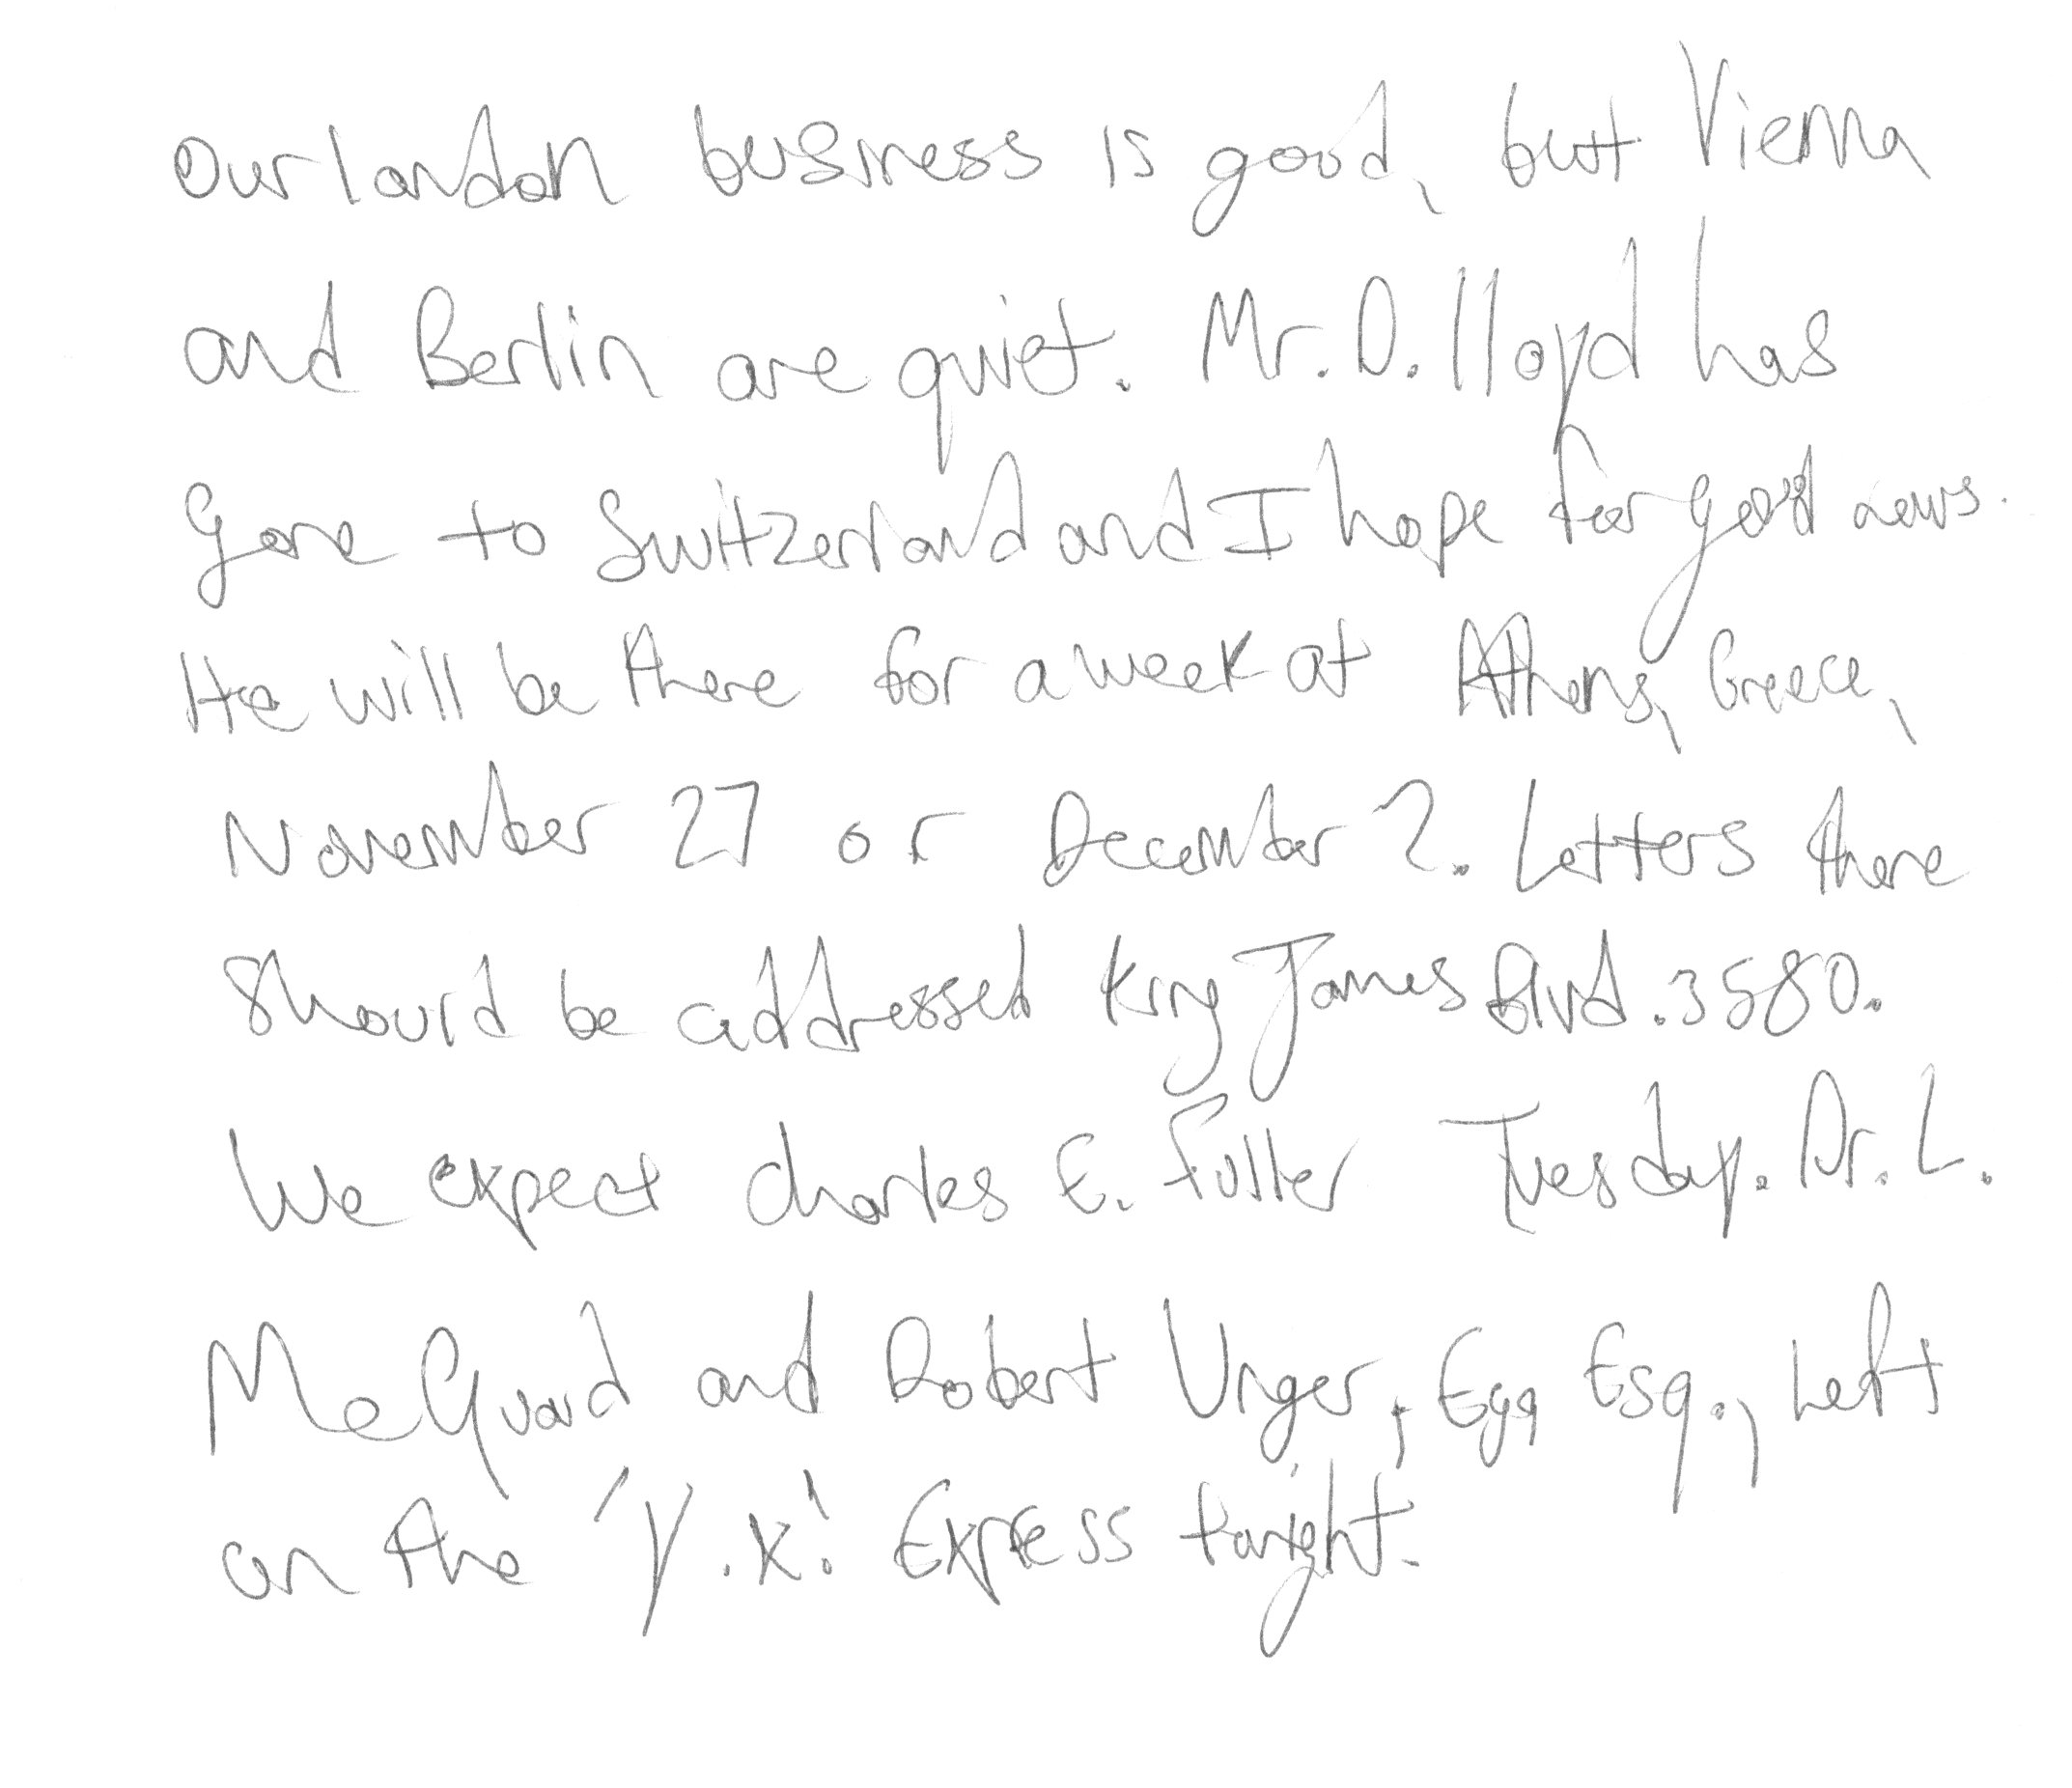 Our london business is good, but Vienna
and Berlin are quiet. Mr. D. lloyd has
gone to Switzerland and I hope for good news.
He will be there for a week at Athens, Greece,
November 27 or December 2. Letters there
should be addressed King James Blvd. 3580.
We expect Charles E. Fuller Tuesday. Dr. L.
McQuard and Robert Unger, Egq Esq., Left
on the 'Y.X.' Express tonight.